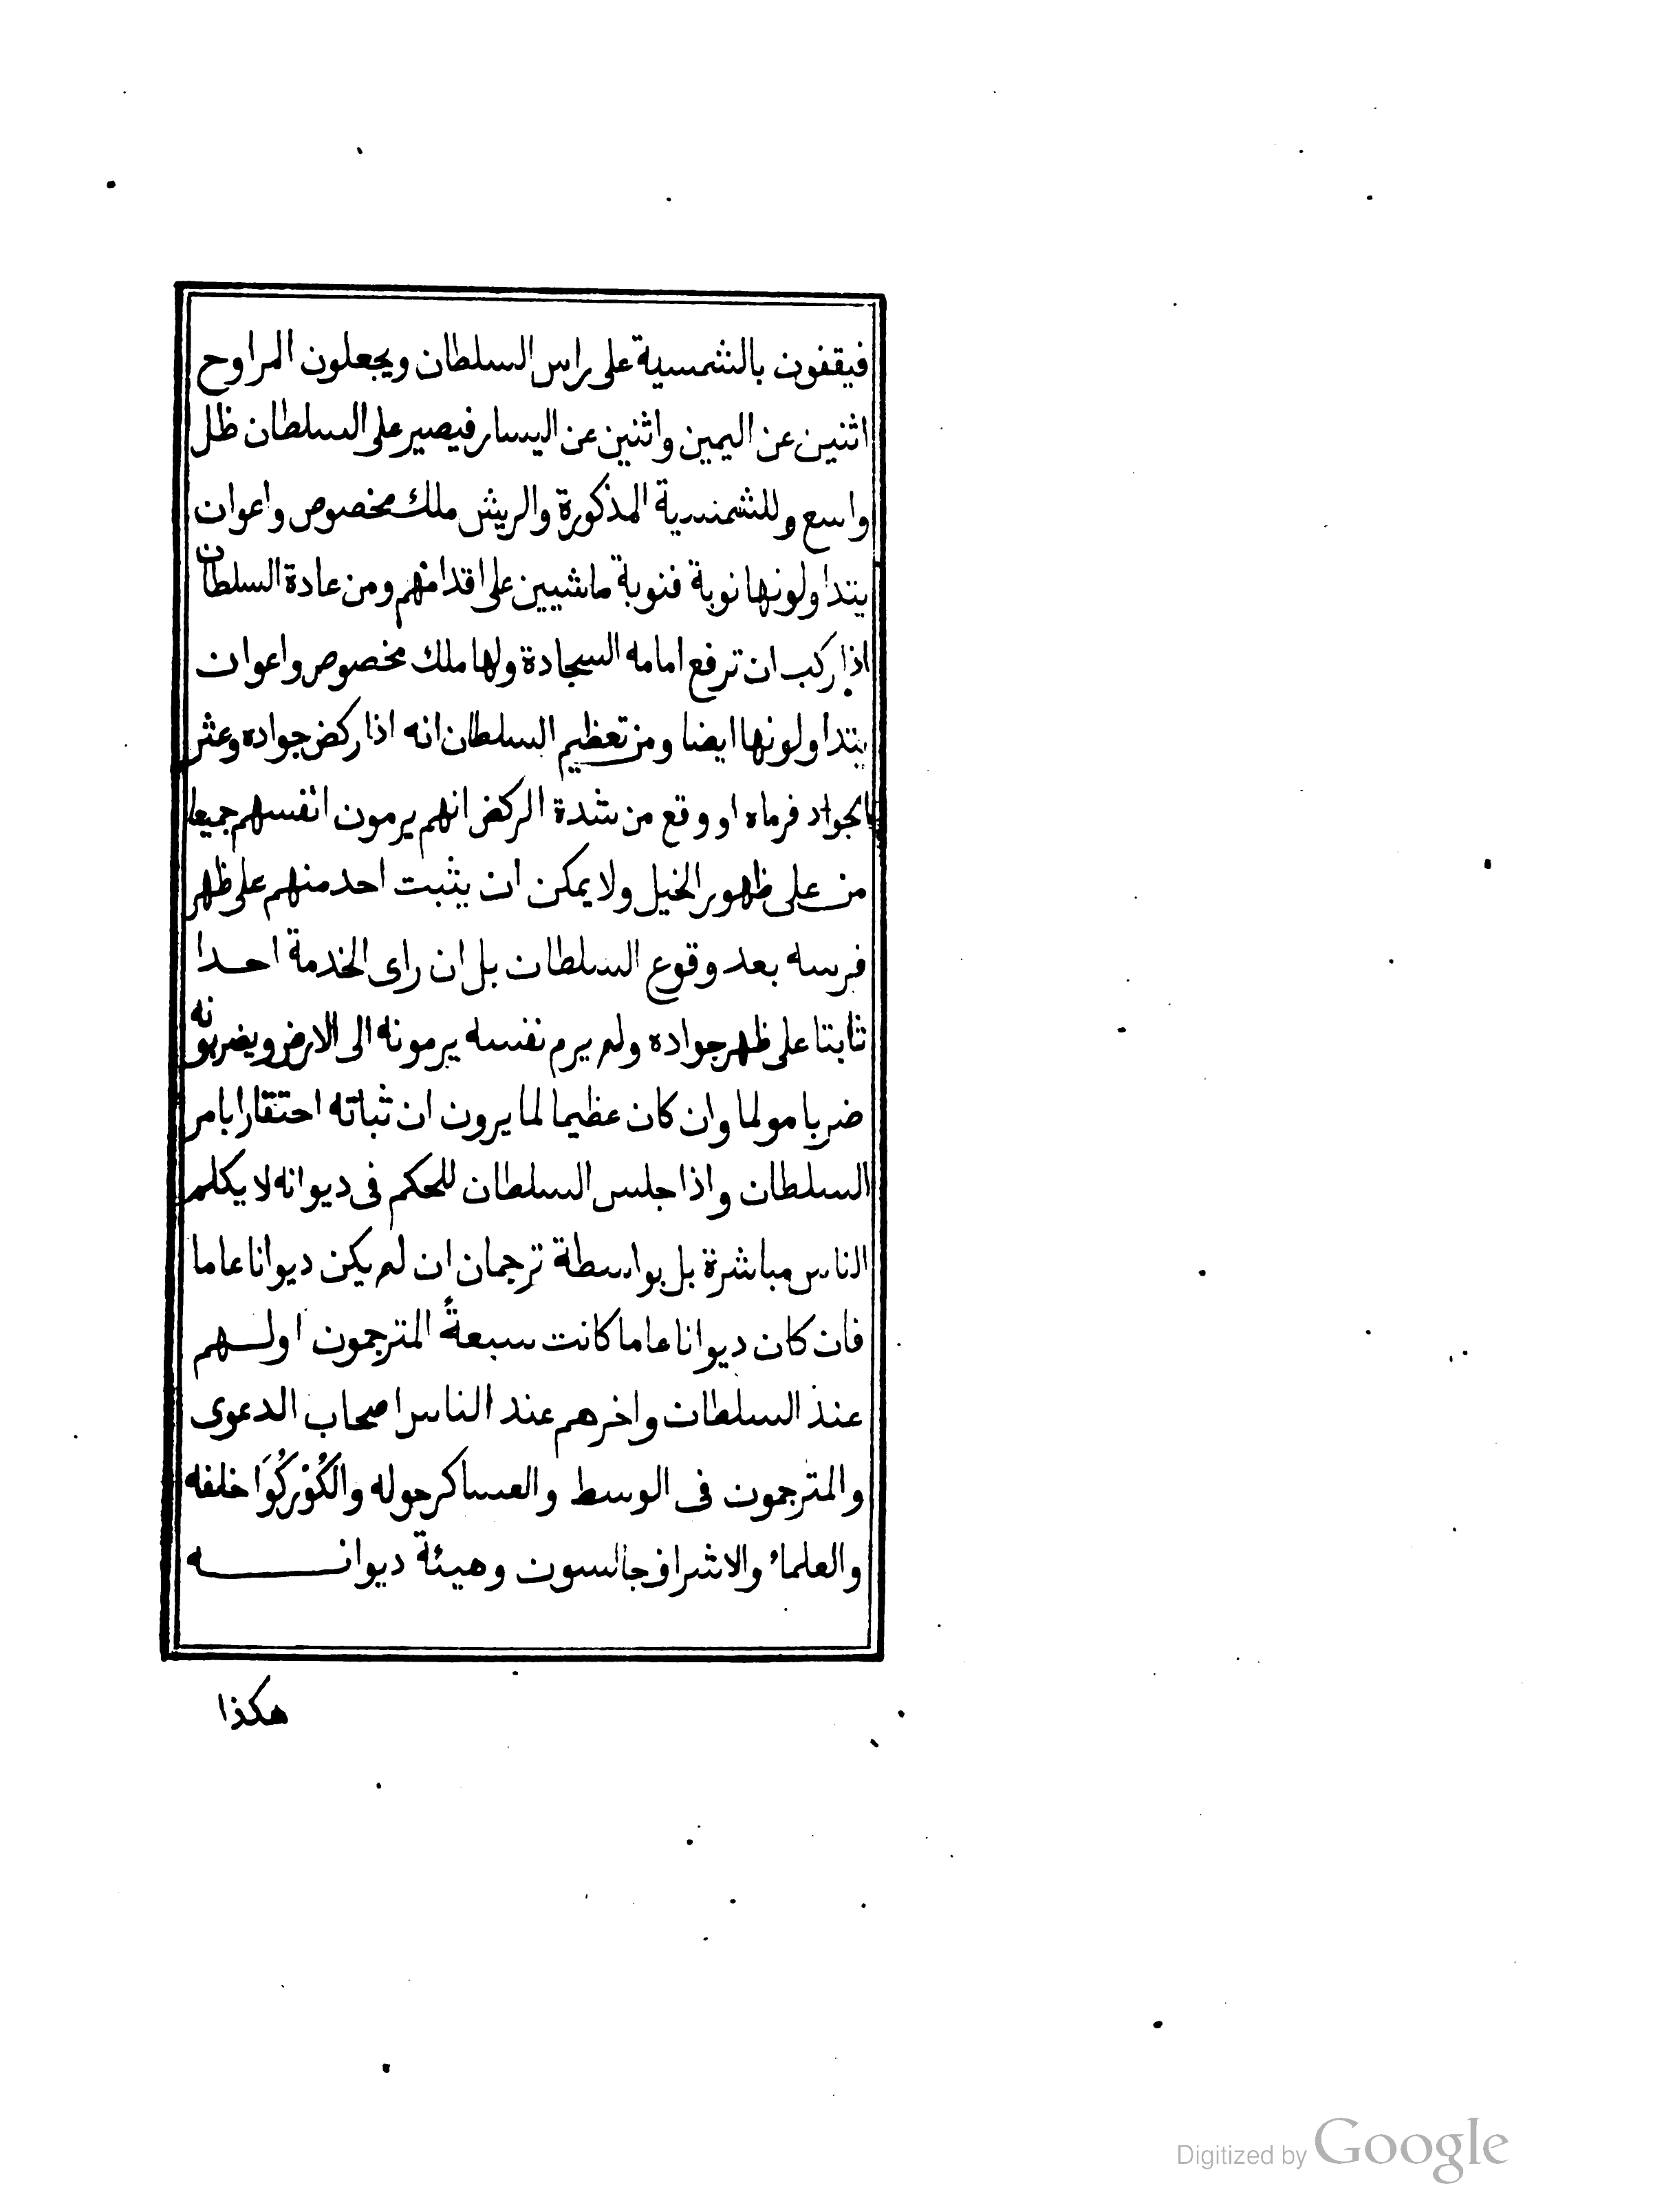 فيقفون بالشمسية على راس السلطان ويجعلون المراوح
اثنين عن اليمين واثنين عن اليسار فيصير على السلطان ظل
واسع وللشمسية المذكورة والريش ملك مخصوص واعوان
يتداولونها نوبة فنوبة ماشيين على اقدامهم ومن عادة السلطان
اذا ركب ان ترفع امامه السجادة ولها ملك مخصوص واعوان
يتداولونها ايضا ومن تعظيم السلطان انه اذا ركض جواده وعثر
الجواد فرماه او وقع من شدة الركض انهم يرمون انفسهم جميعا
من على ظهور الخيل ولا يمكن ان يثبت احد منهم على ظهر
فرسه بعد وقوع السلطان بل ان راى الخدمة احدا
ثابتا على ظهر جواده ولم يرم نفسه يرمونه الى الارض ويضربونه
ضربا مولما وان كان عظيما لما يرون ان ثباته احتقارا بامر
السلطان واذا جلس السلطان للحكم فى ديوانه لا يكلم
الناس مباشرة بل بواسطة ترجمان ان لم يكن ديوانا عاما
فان كان ديوانا عاما كانت سبعةً المترجمون اولهم
عند السلطان واخرهم عند الناس اصحاب الدعوى
والمترجمون فى الوسط والعساكر حوله والكُوْرْكُوَا خلفه
والعلماء والاشراف جالسون وهيئة ديوانه
هكذا
Digitized by Google